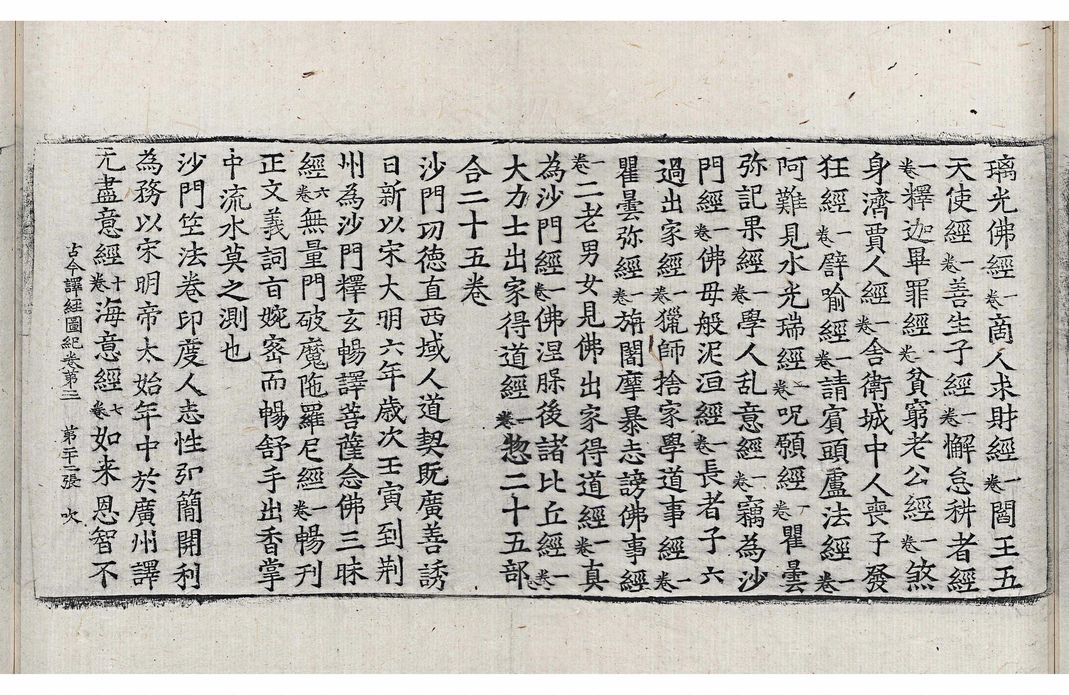 璃光佛經一卷商人求財經一卷閻王五
天使經一卷善生子經一卷懈怠耕者經
一卷釋迦畢罪經一卷貧窮老公經一卷煞
身濟賈人經一卷舍衛城中人喪子發
狂經一卷譬喻經一卷請賓頭盧法經一卷
阿難見水光瑞經一卷呪願經一卷瞿曇
弥記果經一卷學人乱意經一卷竊為沙
門經一卷佛母般泥洹經一卷長者子六
過出家經一卷獵師捨家學道事經一卷
瞿曇弥經一卷旃闍摩暴志謗佛事經
一卷二老男女見佛出家得道經一卷真
為沙門經一卷佛涅槃後諸比丘經一卷
大力士出家得道經一卷惣二十五部
合二十五卷
沙門功德直西域人道契既廣善誘
日新以宋大明六年歲次壬寅到荆
州為沙門釋玄暢譯菩薩念佛三昧
經六卷無量門破魔陁羅尼經一卷暢刊
正文義詞旨婉密而暢舒手出香掌
中流水莫之測也
沙門竺法卷印度人志性弘簡開利
為務以宋明帝太始年中於廣州譯
无盡意經十卷海意經七卷如来恩智不
古今譯經圖紀卷第三 第二十二張 火